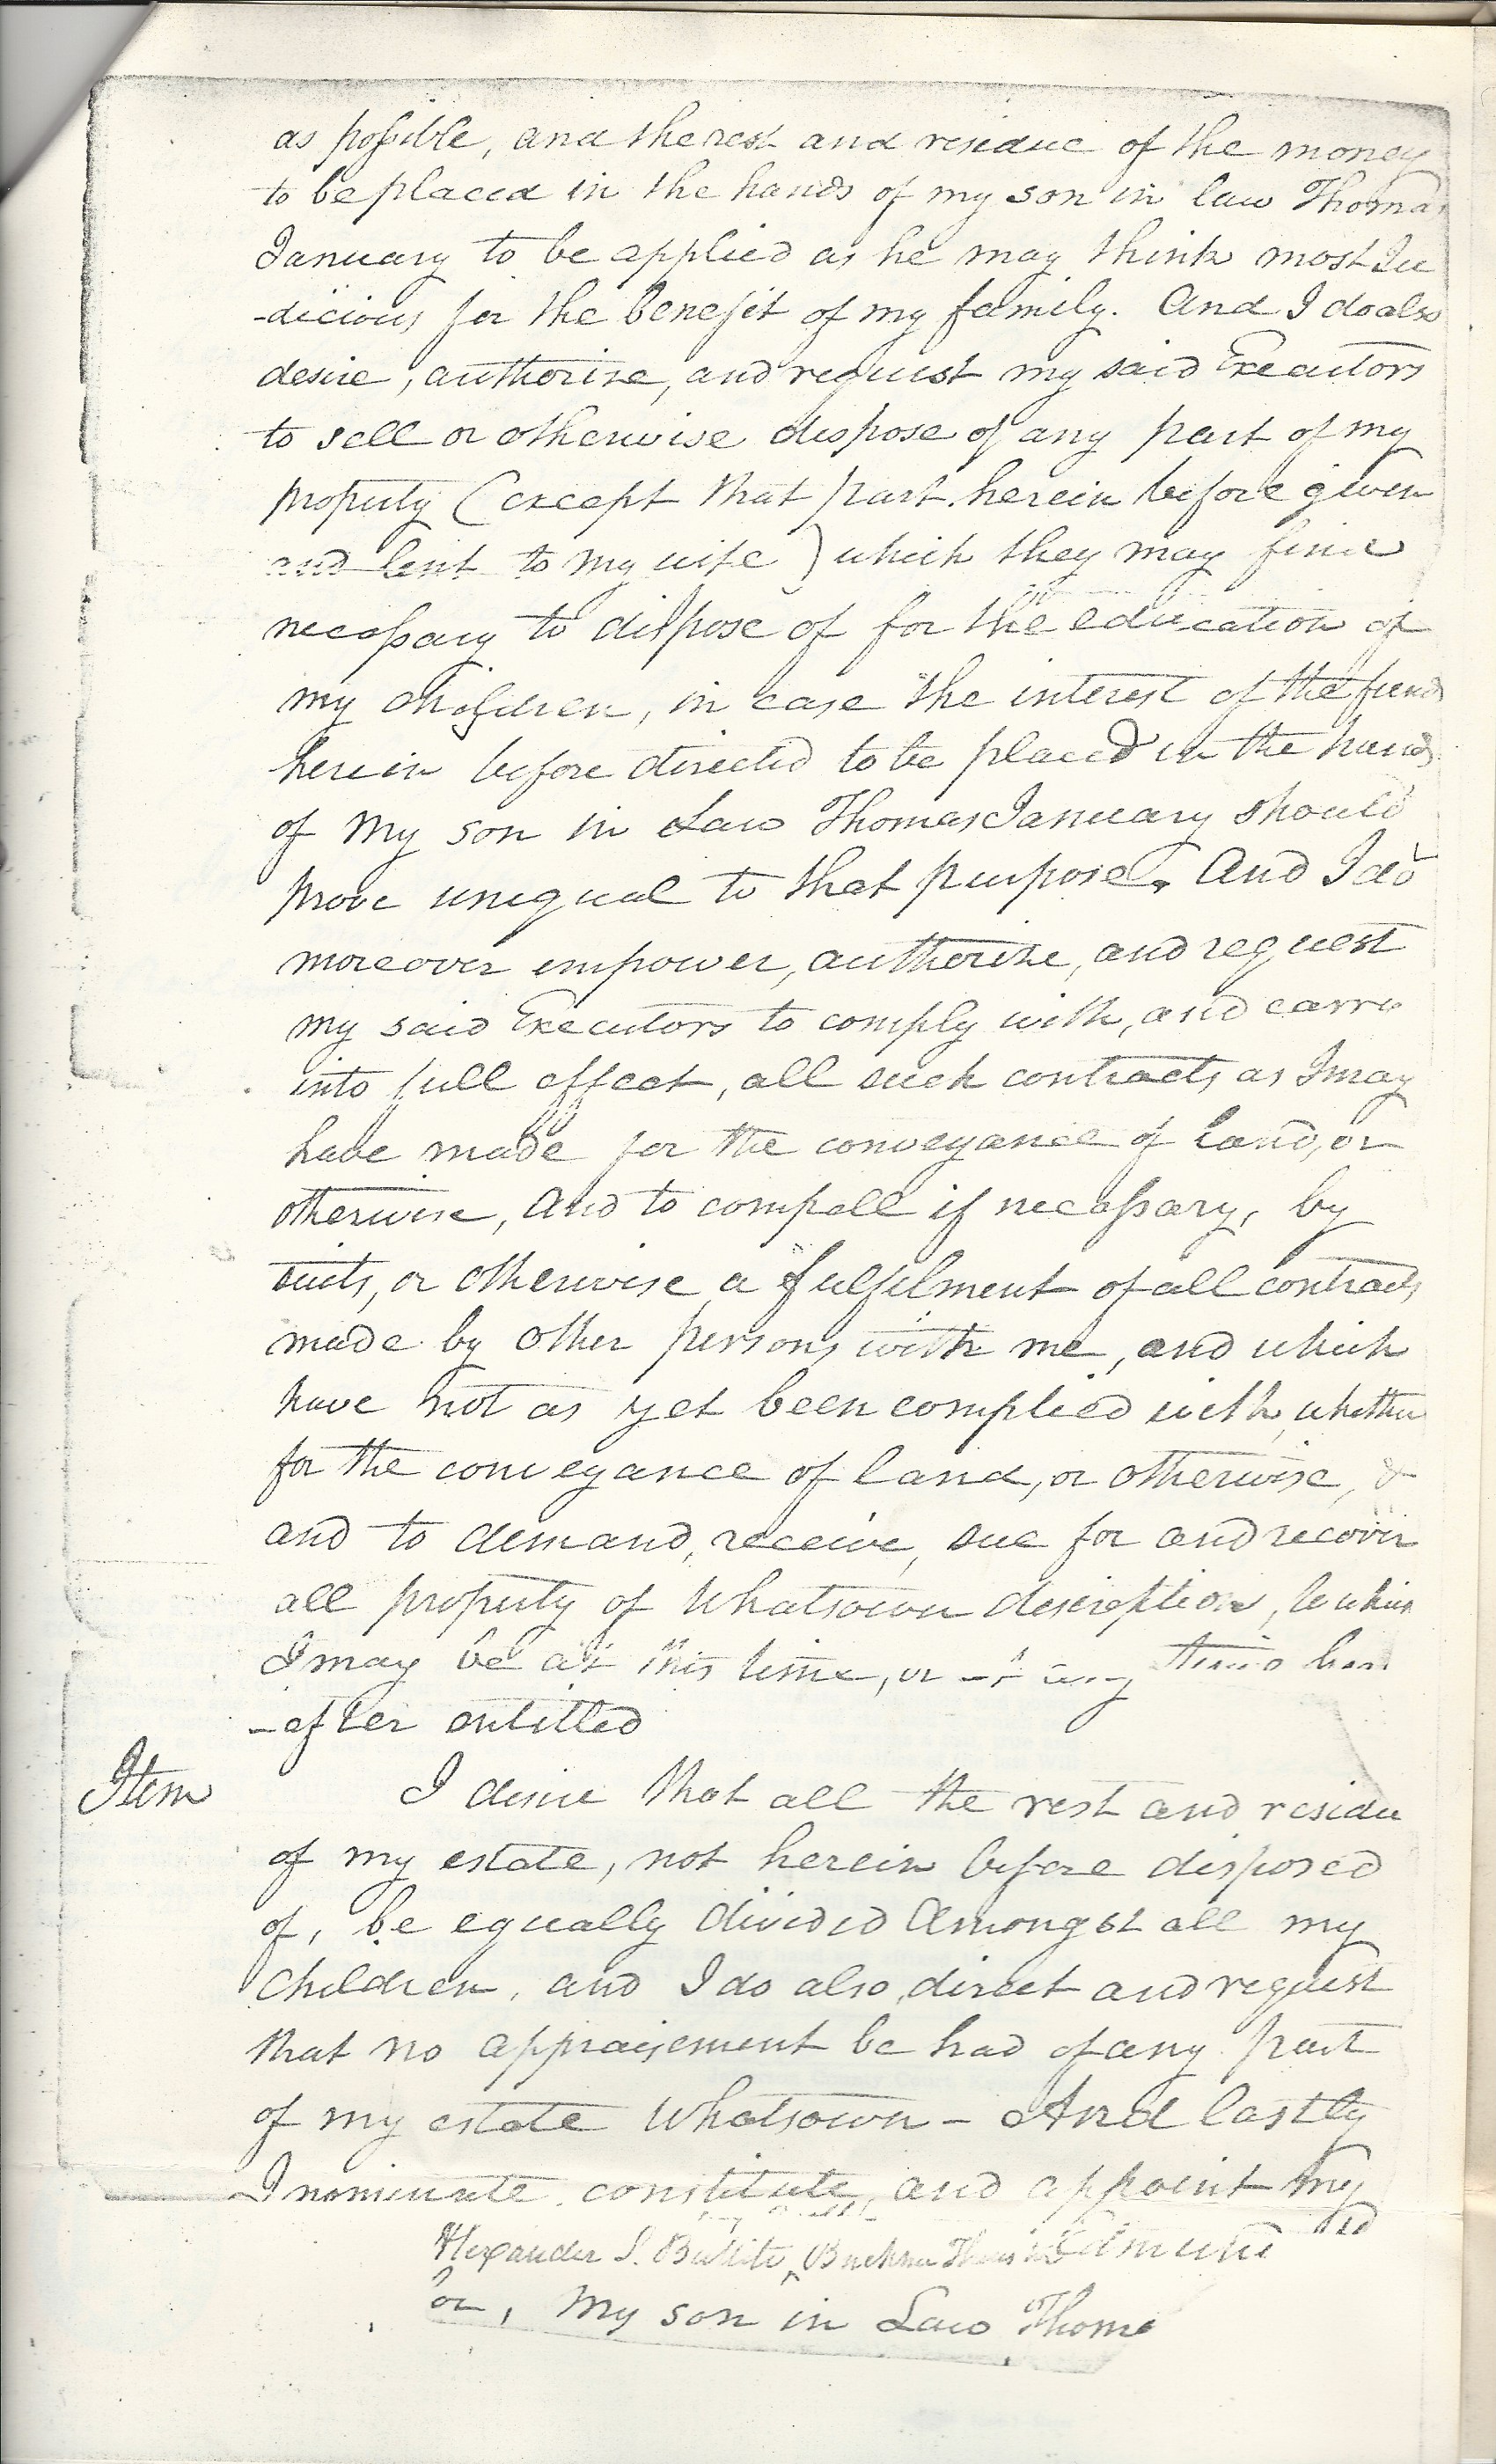 as possible, and the rest and residue of the money
to be placed in the hands of my son in law Thomas
January to be applied as he may think most Ju
-dicious for the benefit of my family. And I do also
desire, authorize, and request my said Executors
to sell or otherwise dispose of any part of my
property (except that part herein before given
and lent to my wife) which they may find
necessary to dispose of for the education of
my children, in case the interest of the fund
herein before directed to be placed in the hands
of my son in Law Thomas January should
prove unequal to that purpose. And I do
moreover empower, authorize, and request
my said Executors to comply with, and carry
into full effect, all such contracts as I may
have made for the conveyance of land, or
otherwise, and to compell if necessary, by
suits, or otherwise a fulfilment of all contracts
made by other persons with me, and which
have not as yet been complied with, whether
for the conveyance of land, or otherwise, &
and to demand, receive, sue for and recover
all property of whatsoever description, to which
I may be at this time, or at any time here
-after entitled
Item I desire that all the rest and residue
of my estate, not herein before disposed
of, be equally divided amongst all my
children, and I do also direct and request
that no appraisement be had of any part
of my estate whatsoever - And lastly
I nominate constitute, and appoint my
Alexander S. Bullitt, Edmund
my son in Law Thomas